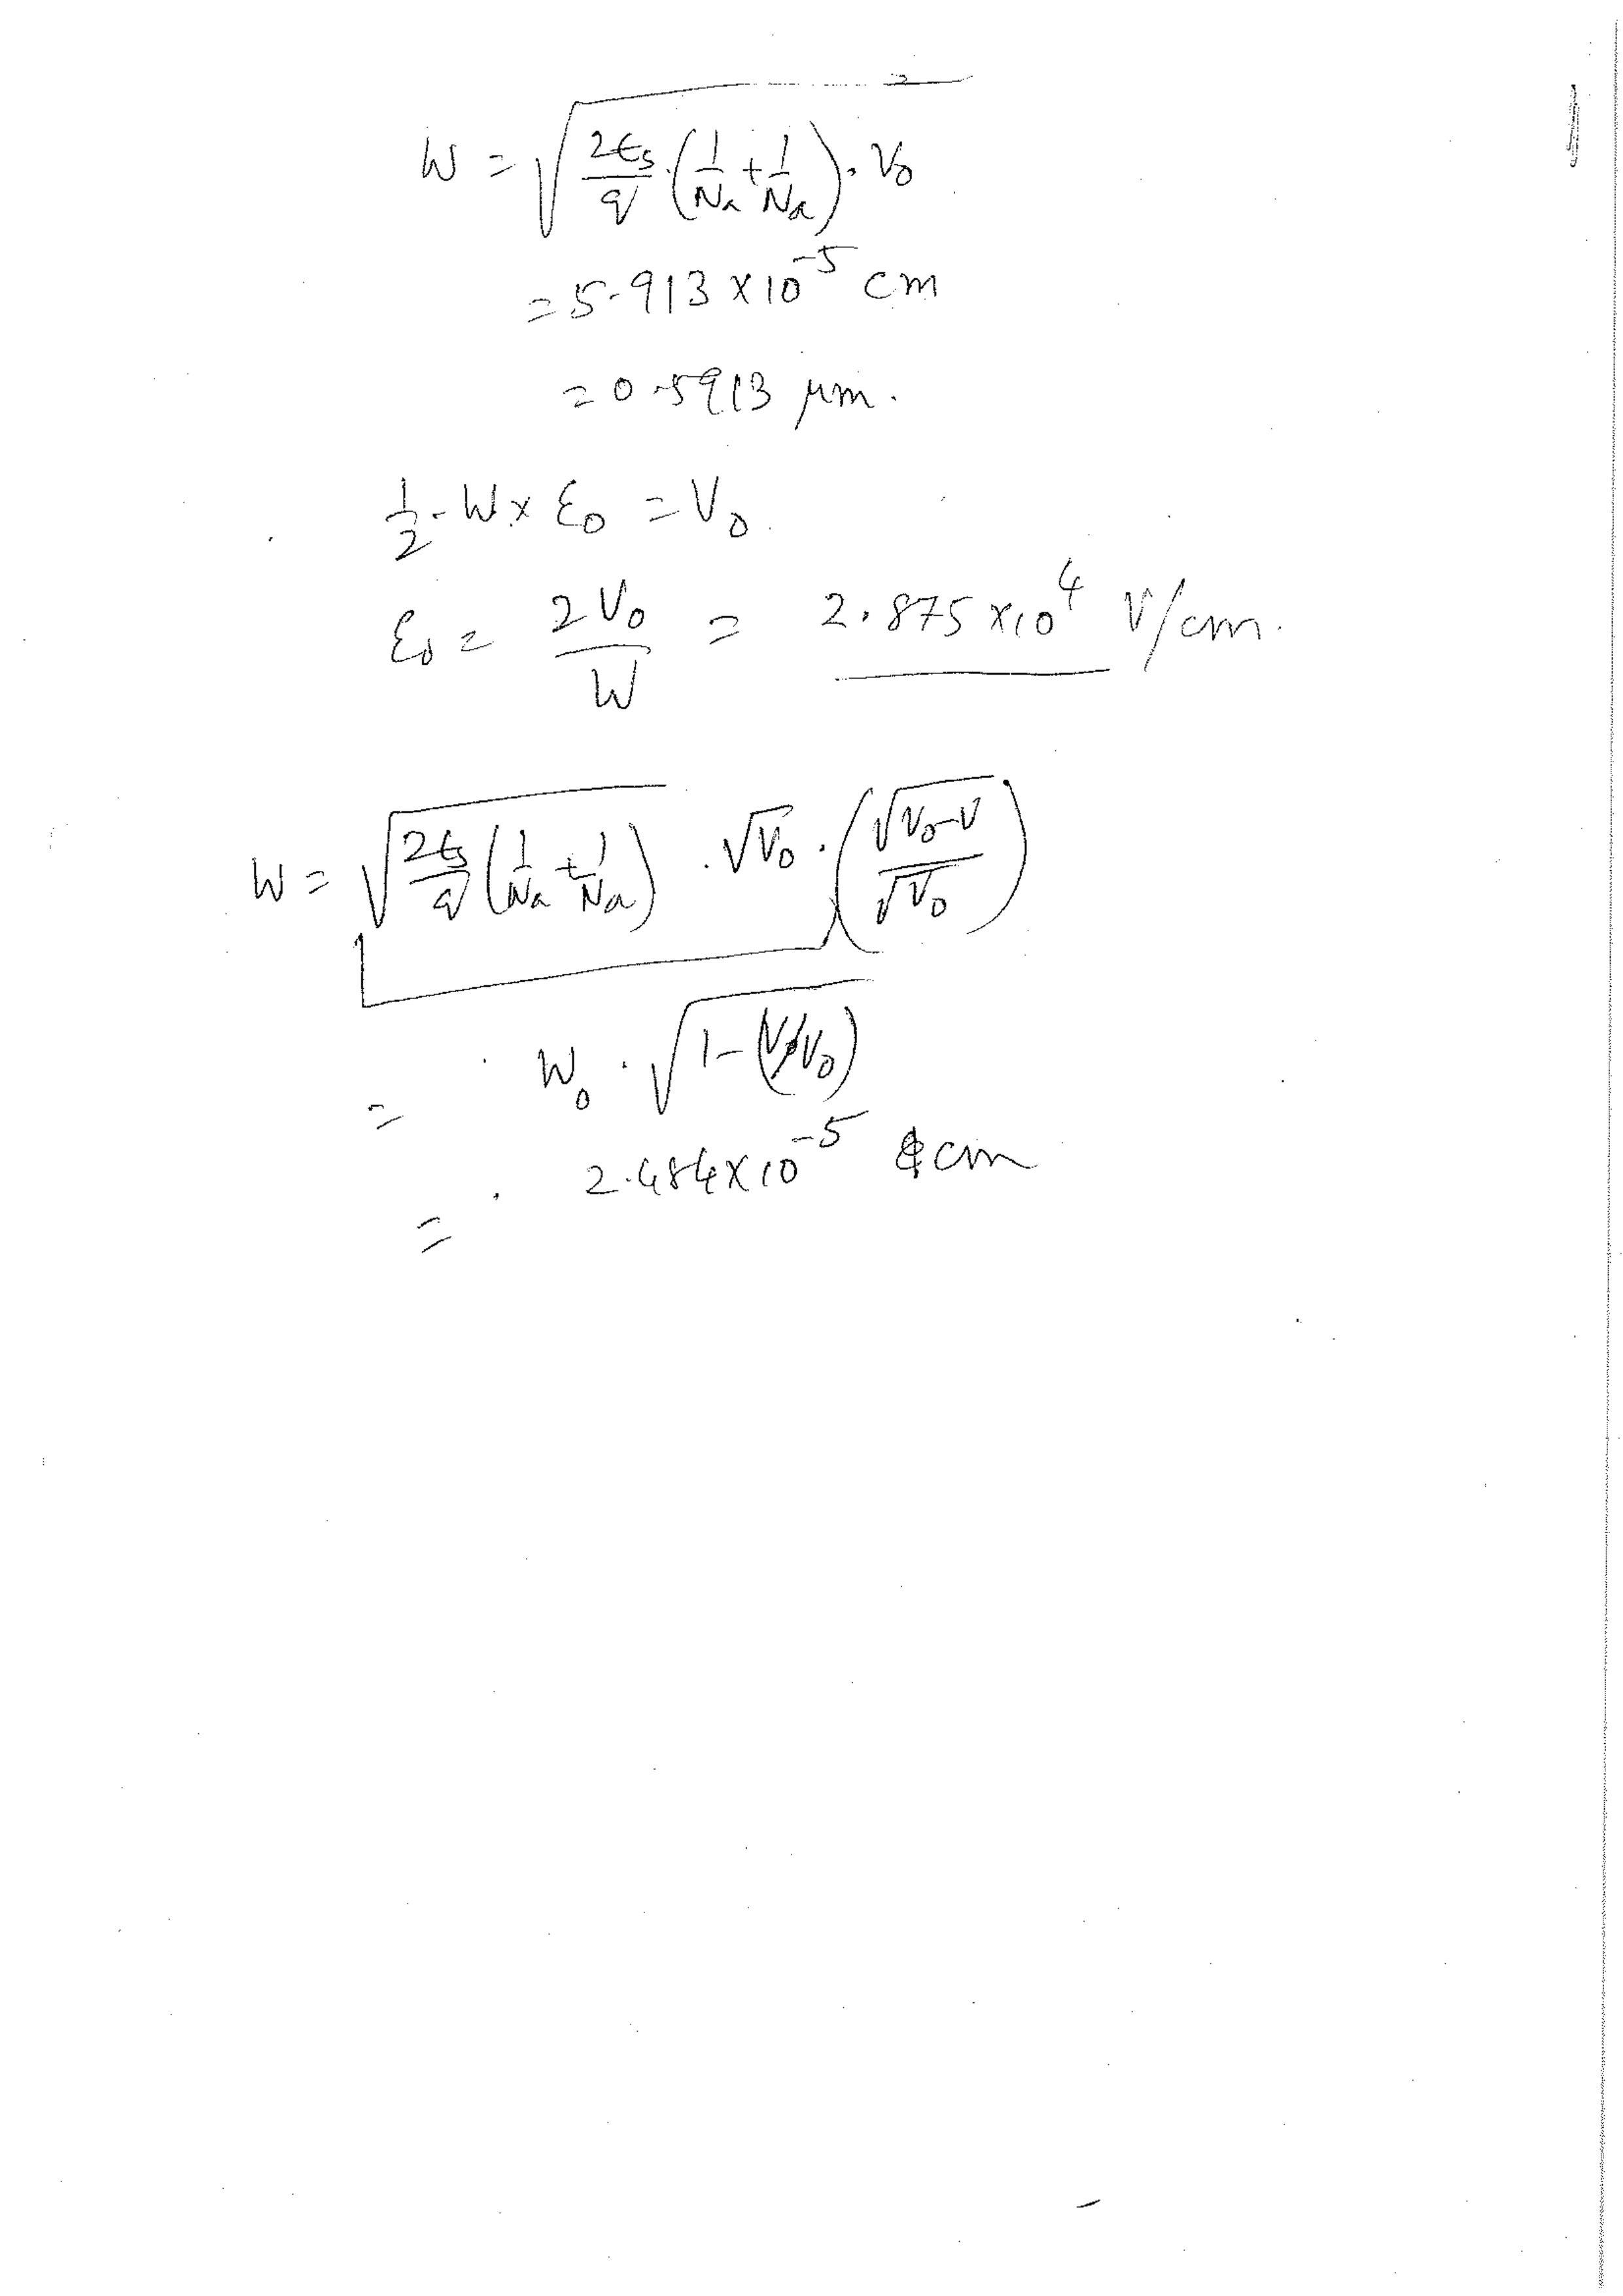 W = √(2ϵs/q · (1/Na + 1/Na) · V0)
= 5.913 × 10^-5 cm
= 0.5913 μm.
1/2 · W × ℰ0 = V0
ℰ0 = 2V0/W = 2.875 × 10^4 V/cm.
W = √(2ϵs/q (1/Na + 1/Na)) · √V0 · (√(V0-V)/√V0)
= W0 · √(1-(V/V0))
= 2.484 × 10^-5 cm